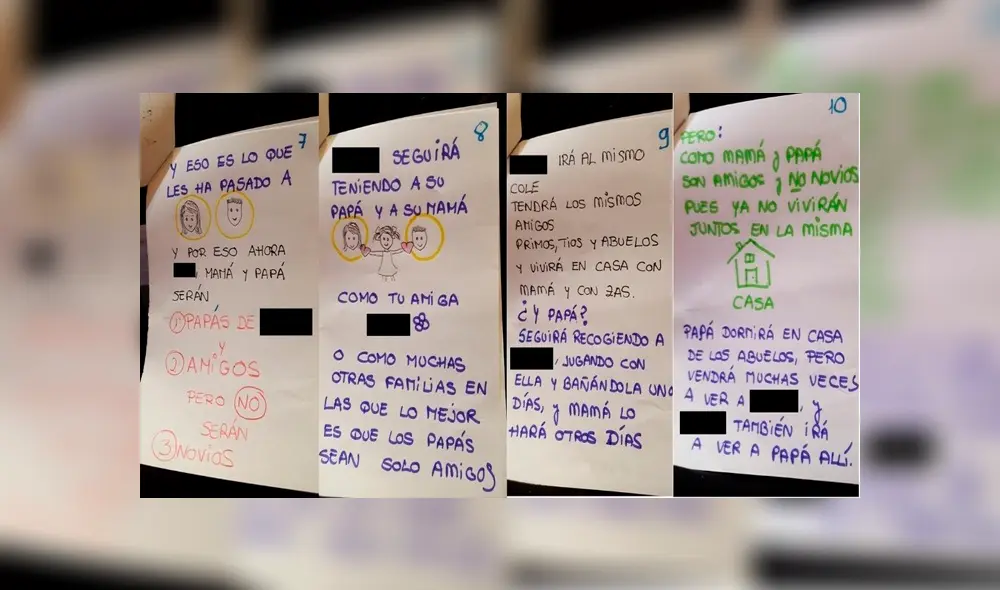 7
Y ESO ES LO QUE
LES HA PASADO A
Y POR ESO AHORA
, MAMÁ Y PAPÁ
SERÁN
① PAPÁS DE
Y
② AMIGOS
PERO NO
SERÁN
③ NOVIOS
8
SEGUIRÁ
TENIENDO A SU
PAPÁ Y A SU MAMÁ
COMO TU AMIGA
O COMO MUCHAS
OTRAS FAMILIAS EN
LAS QUE LO MEJOR
ES QUE LOS PAPÁS
SEAN SOLO AMIGOS
9
IRÁ AL MISMO
COLE
TENDRÁ LOS MISMOS
AMIGOS
PRIMOS, TIOS Y ABUELOS
Y VIVIRÁ EN CASA CON
MAMÁ Y CON ZAS.
¿Y PAPÁ?
SEGUIRÁ RECOGIENDO A
, JUGANDO CON
ELLA Y BAÑÁNDOLA UNO
DÍAS, Y MAMÁ LO
HARÁ OTROS DÍAS
10
PERO:
COMO MAMÁ Y PAPÁ
SON AMIGOS Y NO NOVIOS
PUES YA NO VIVIRÁN
JUNTOS EN LA MISMA
CASA
PAPÁ DORMIRÁ EN CASA
DE LOS ABUELOS, PERO
VENDRÁ MUCHAS VECES
A VER A , Y
TAMBIÉN IRÁ
A VER A PAPÁ ALLÍ.